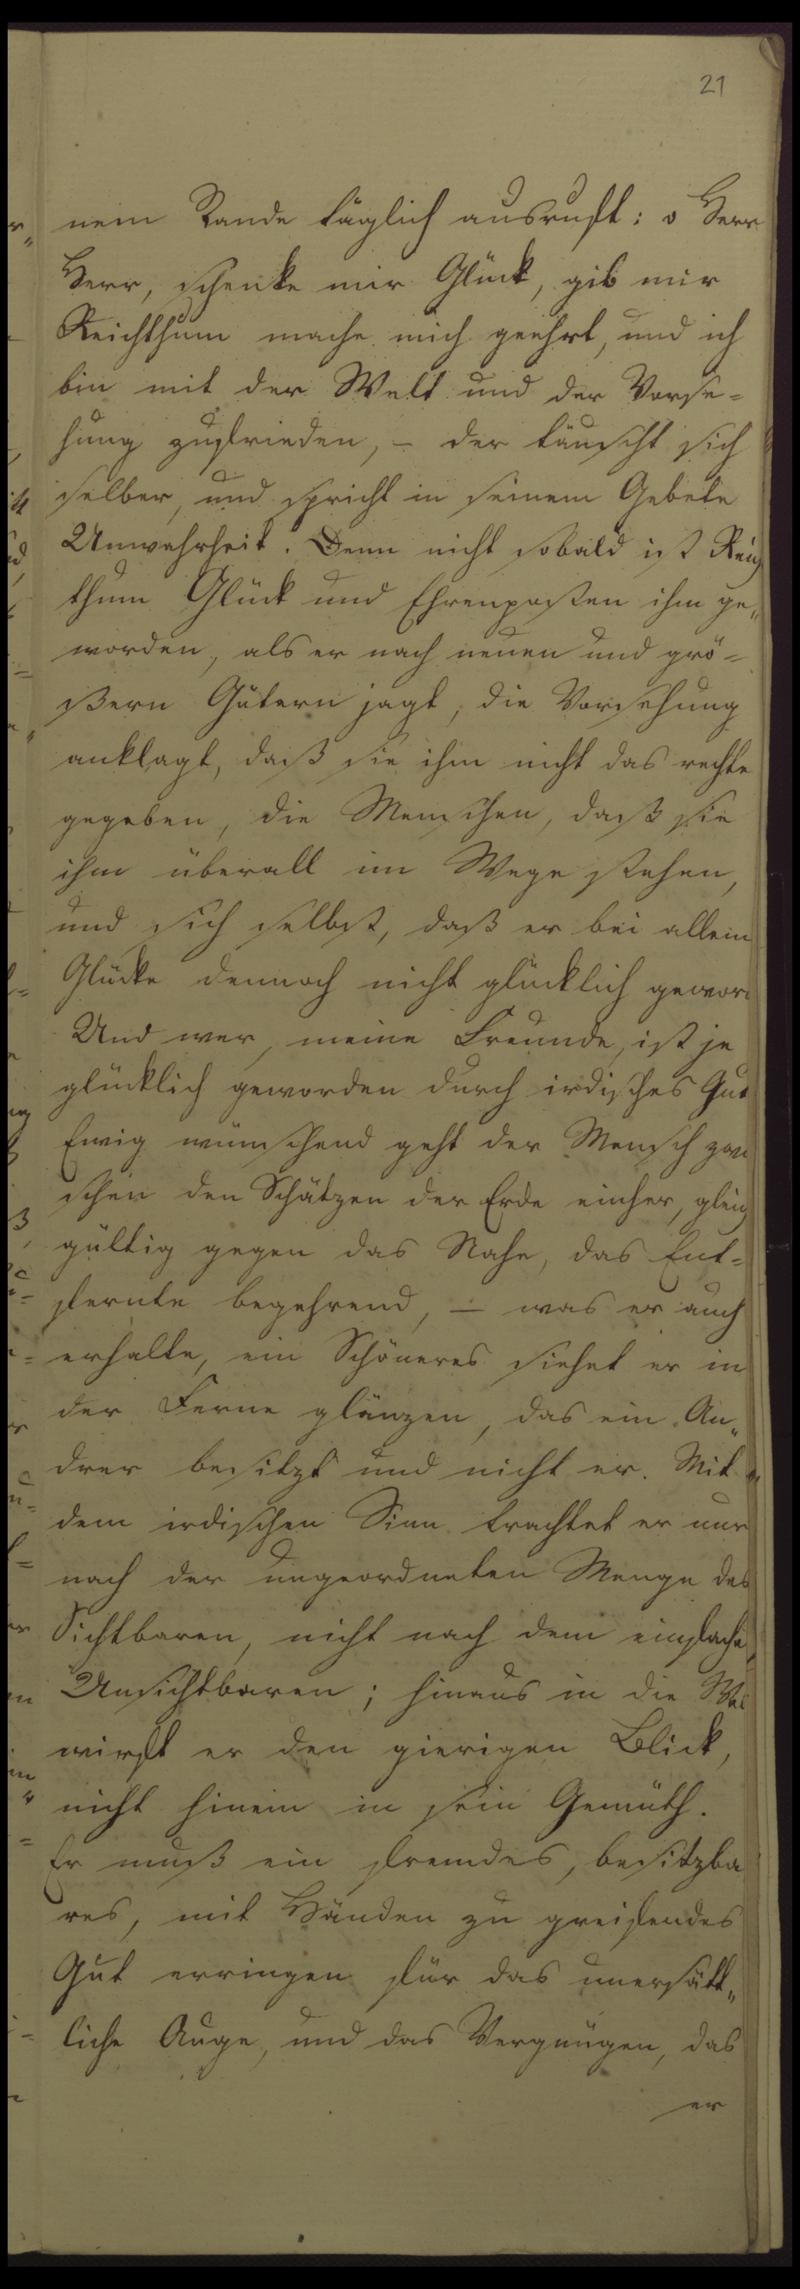 21
nem Rande täglich ausruft: o Herr
Herr, schenke mir Glück, gib mir
Reichthum mache mich geehrt, und ich
bin mit der Welt und der Vorse=
hung zufrieden, – der täuscht sich
selber, und spricht in seinem Gebete
Unwahrheit. Denn nicht sobald ist Reich
thum Glück und Ehrenposten ihm ge„
worden, als er nach neuen und grö=
ßern Gütern jagt, die Vorsehung
anklagt, daß sie ihm nicht das rechte
gegeben, die Menschen, daß sie
ihm überall im Wege stehen,
und sich selbst, daß er bei allem
Glücke dennoch nicht glücklich gewor
Und wer, meine Freunde, ist je
glücklich geworden durch irdisches Gut
Ewig wünschend geht der Mensch zwi
schen den Schätzen der Erde einher, gleich
gültig gegen das Nahe, das Ent=
fernte begehrend, – was er auch
erhalte, ein Schöneres siehet er in
der Ferne glänzen, das ein An„
drer besitzt und nicht er. Mit
dem irdischen Sinn trachtet er nur
nach der ungeordneten Menge des
Sichtbaren, nicht nach dem einfache
Unsichtbaren; hinaus in die Wel
wirft er den gierigen Blick,
nicht hinein in sein Gemüth.
Er muß ein fremdes, besitzba
res, mit Händen zu greifendes
Gut erringen für das unersätt„
liche Auge, und das Vergnügen, das
er